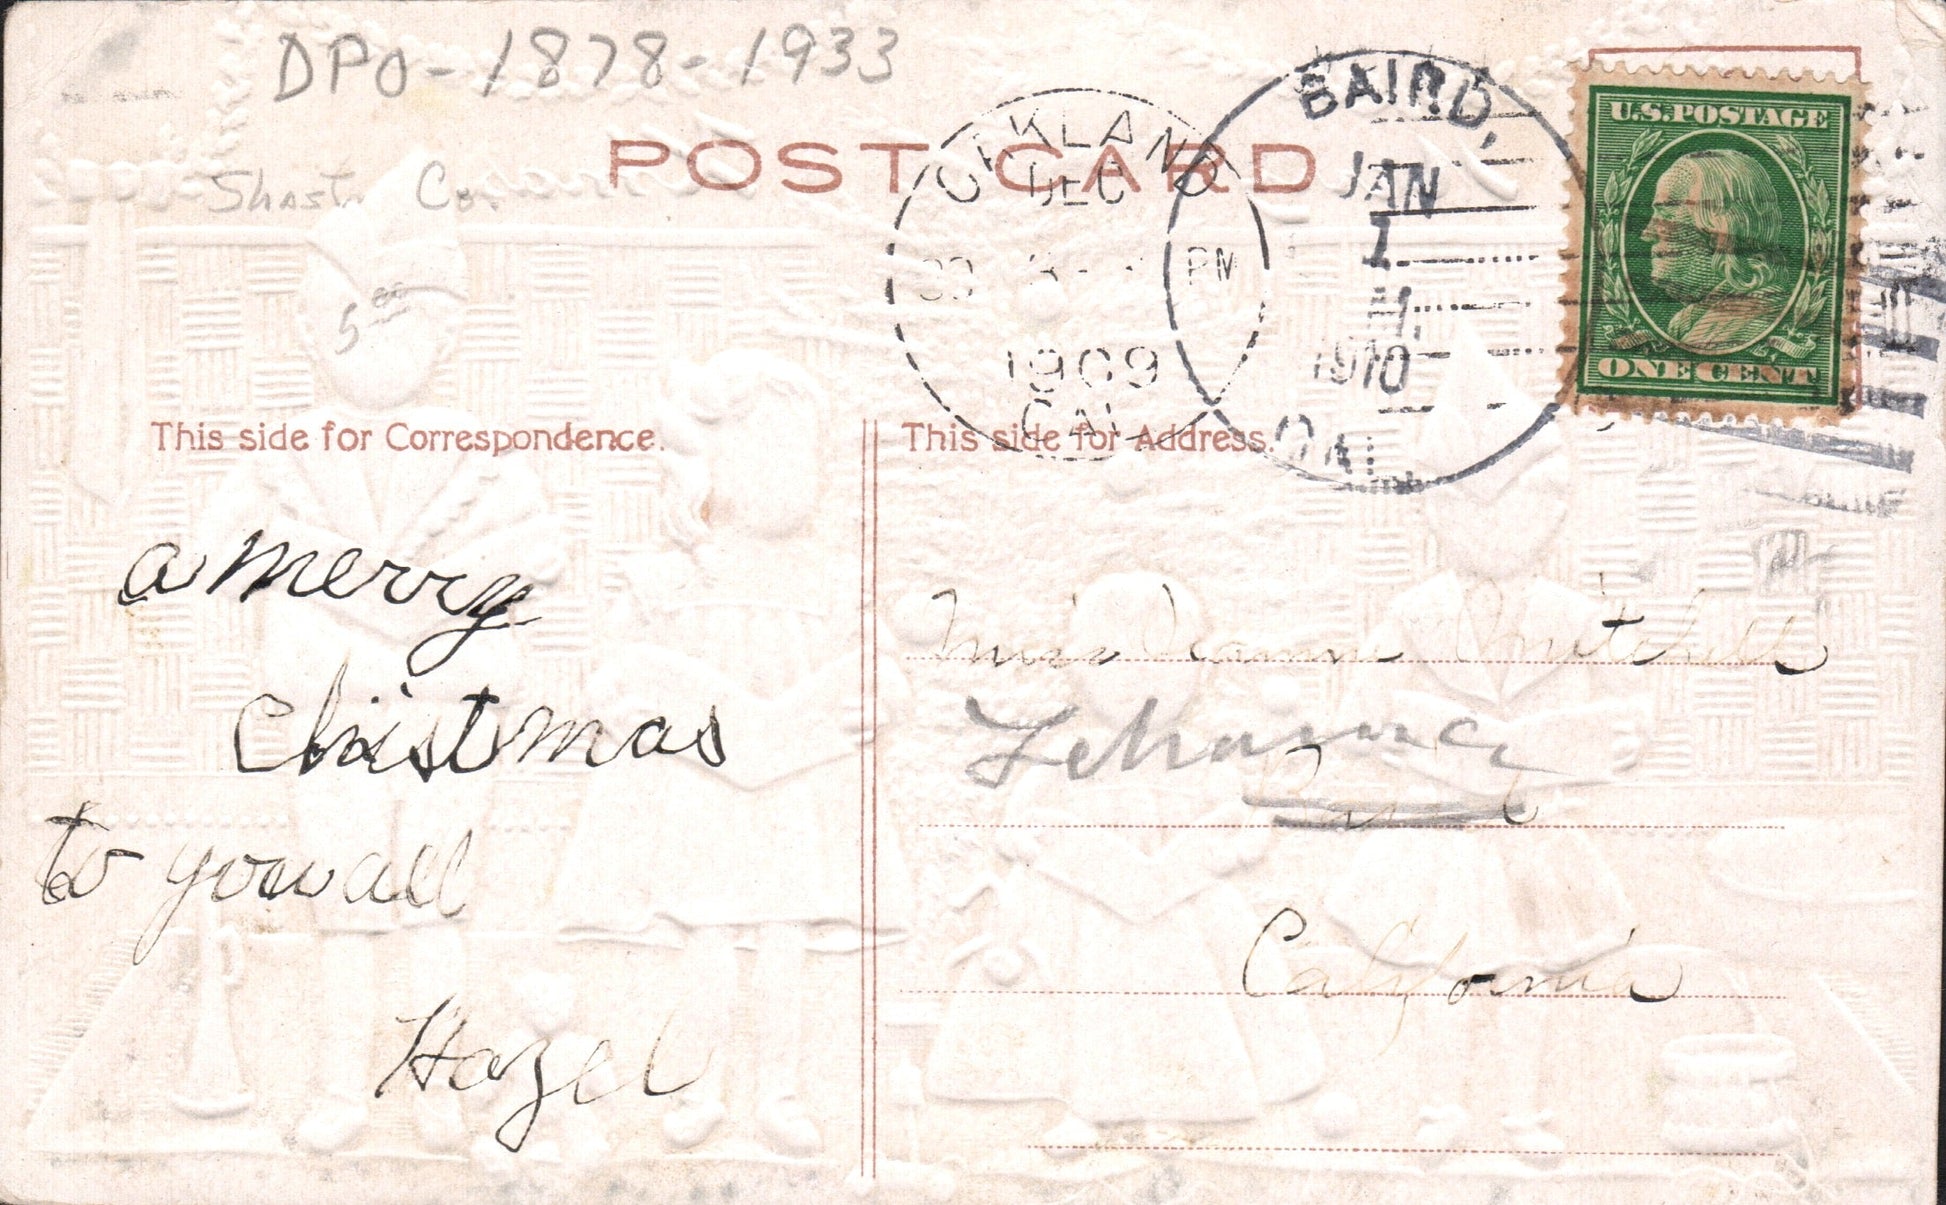 DPO - 1878 - 1933
POST CARD
Shasta Co.
5.00
OAKLAND
DEC
PM
1909
CAL
BAIRD,
JAN
1
1910
CAL
U.S. POSTAGE
ONE CENT
This side for Correspondence.
This side for Address.
a merry
Christmas
to you all
Hazel
Miss Mitchell
Baird
California